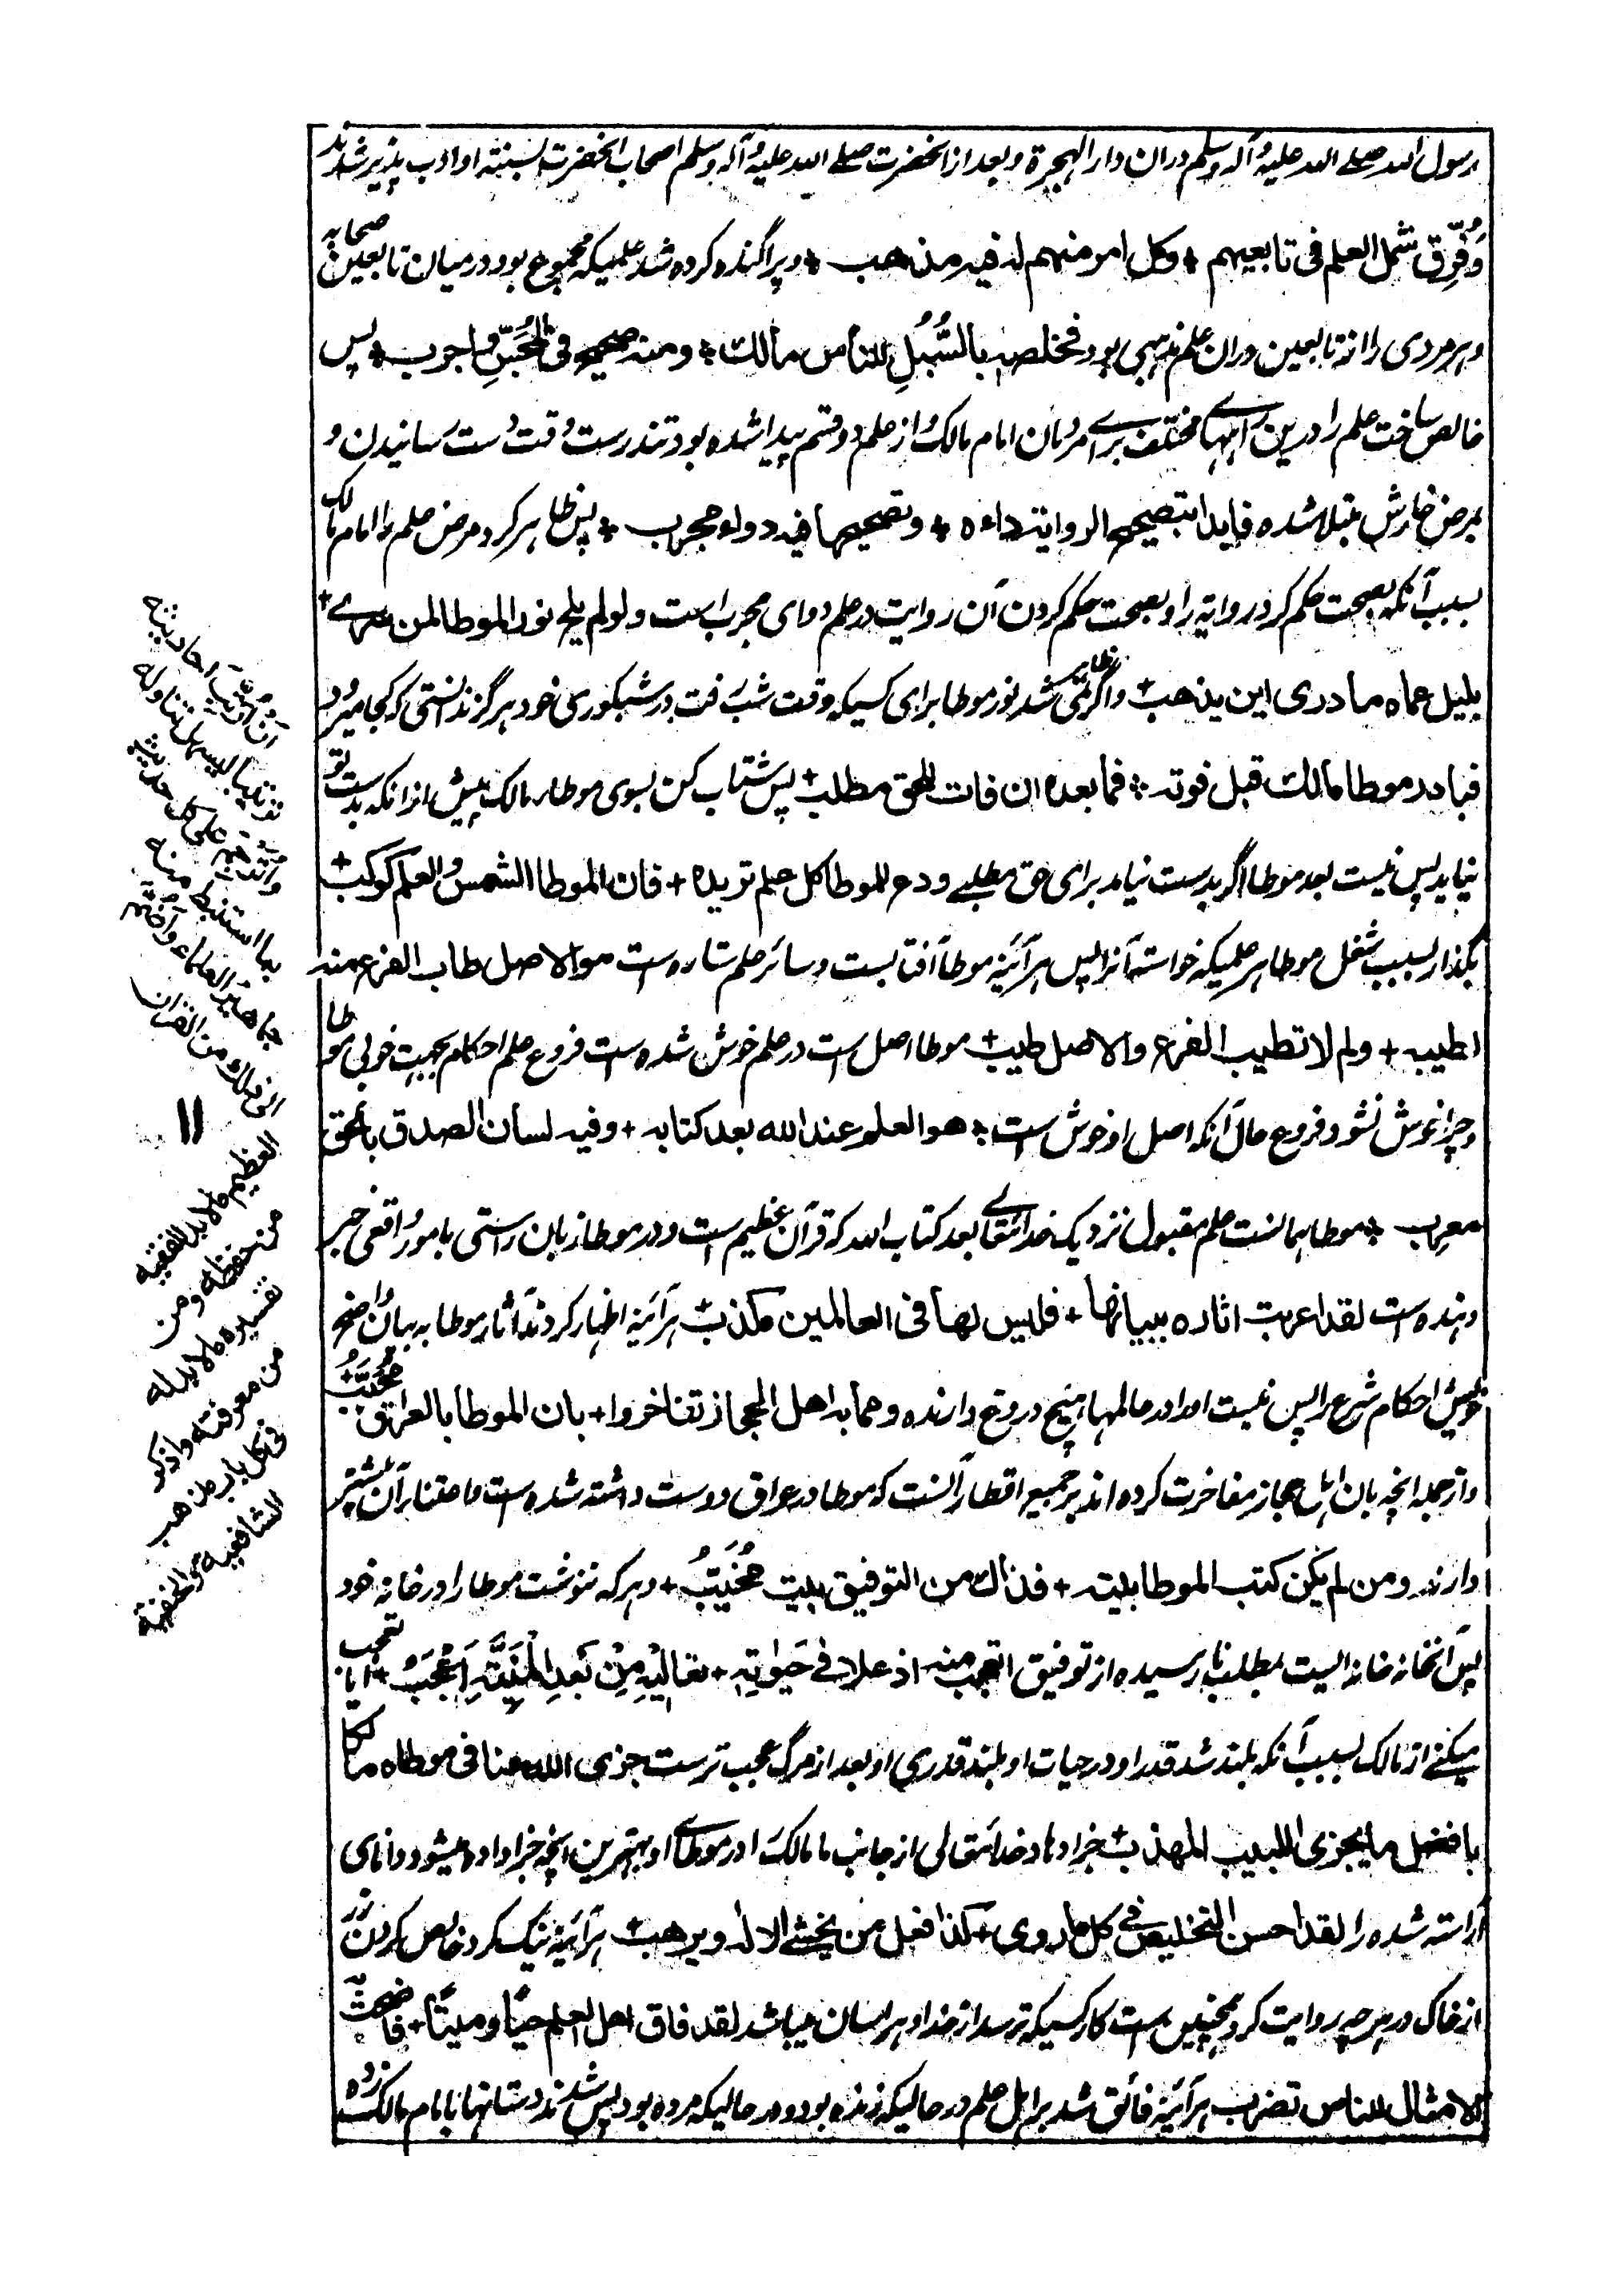 رسول الله صلے الله علیه و آله وسلم دران دار الهجرة و بعد از انحضرت صلے الله علیه و آله وسلم اصحاب انحضرت بسنته او ادب پذیر شدند
وَفُرِّقَ شمل العلم فی تابعیهم + وکل امرء منهم له فیه مذهب + و پراگنده کرده شد علمیکه مجموع بود در میان تابعین صحابه
و هر مردی را از تابعین دران علم مذهبی بود فخلصه بالسُّبُلِ للناس مالك + ومنه صحیح فی المجسّ و اجرب + پس
خالص ساخت علم را درین راههای مختلف برای مردمان امام مالک و از علم دو قسم پیدا شده بود تندرست وقت دست رسانیدن و
بمرض خارش مبتلا شده فابدا بتصحیح الروایة داءه + وتصحیحها فیه دواء مجرب + پس ظاهر کرد مرض علم را امام مالک
بسبب آنکه بصحت حکم کرد روایة را و بصحت حکم کردن آن روایت در علم دوای مجرب است ولو لم یلح نور الموطا لمن سرے +
بلیل عماه ما دری این یذهب + و اگر ظاهر نمی شد نور موطا برای کسیکه وقت شب رفت در شبکوری خود هرگز ندانستی که کجا میرود
فبادر موطا مالك قبل فوته + فما بعده ان فات للحق مطلب + پس شتاب کن بسوی موطاء مالک پیش ازانکه بدست تو
نیاید پس نیست بعد موطا اگر بدست نیاید برای حق مطلبے ودع للموطا کل علم تریده + فان الموطا الشمس والعلم کوکب +
بگذار بسبب شغل موطا هر علمیکه خواسته آنرا پس هرآئینه موطا آفتابست و سائر علم ستاره ست هو الاصل طاب الفرع منه
اطیبه + ولم لا تطیب الفرع والاصل طیب + موطا اصل ست در علم خوش شده ست فروع علم احکام بجهت خوبی موطا
و چرا خوش نشود فروع حال آنکه اصل او خوش ست + هو العلم عند الله بعد کتابه + وفیه لسان الصدق بالحق
معرب + موطا همانست علم مقبول نزدیک خدایتعالے بعد کتاب الله که قرآن عظیم ست و در موطا زبان راستی بامور واقعی خبر
دهنده ست لقد اعربت اثاره ببیانها + فلیس لها فی العالمین مکذب + هرآئینه اظهار کردند آثار موطا به بیان واضح
خویش احکام شرع را پس نیست او را در عالمها هیچ دروغ دارنده ومما به اهل الحجاز تفاخروا + بان الموطا بالعراق مُحَبَّبُ +
و از جمله انچه بان اهل حجاز مفاخرت کرده اند بر جمیع اقطار آنست که موطا در عراق دوست داشته شده ست ما اعتنار آن بیشتر
دارند ومن لم یکن کتب الموطا ببیته + فذاك من التوفیق بیت مُخَیَّبُ + و هر که ننوشت موطا را در خانه خود
پس آنخانه خانه ایست بمطلب نارسیده از توفیق اتعجب منه اذ علا فی حیوته + تعالیه من بعد المنیة اعجب + آیا تعجب
میکنے از مالک بسبب آنکه بلند شد قدر او در حیات او بلند قدری او بعد از مرگ عجب ترست جزی الله عنا فی موطاه مالکا
بافضل ما یجزی اللبیب المهذب + جزا دهاد خدایتعالی از جانب ما مالک را در موطاے او بهترین انچه جزا داده میشود دانای
آراسته شده را لقد احسن التخلیص فی کل ما روی + کذا فعل من یخشے الاله ویرهب + هرآئینه نیک کرد خالص کردن زر
از خاک در هرچه روایت کرد همچنین ست کار کسیکه ترسد از خدا و هراسان میباشد لقد فاق اهل العلم حیًا ومیتًا + فاضحت به
الامثال للناس تضرب هرآئینه فائق شد بر اهل علم در حالیکه زنده بود و در حالیکه مرده بود پس شدند داستانها بامام مالک زده
أن أرتب أحادیثه
ترتیبا یسهل تناوله
وأترجم علی کل حدیث
بما استنبط منه
جماهیر العلماء وأضم
الی ذلك من القران
العظیم ما لابد للفقیه
من حفظه ومن
تفسیره ما لابد له
من معرفته واذکر
فی کل باب مذهب
الشافعیة والحنفیة
۱۱